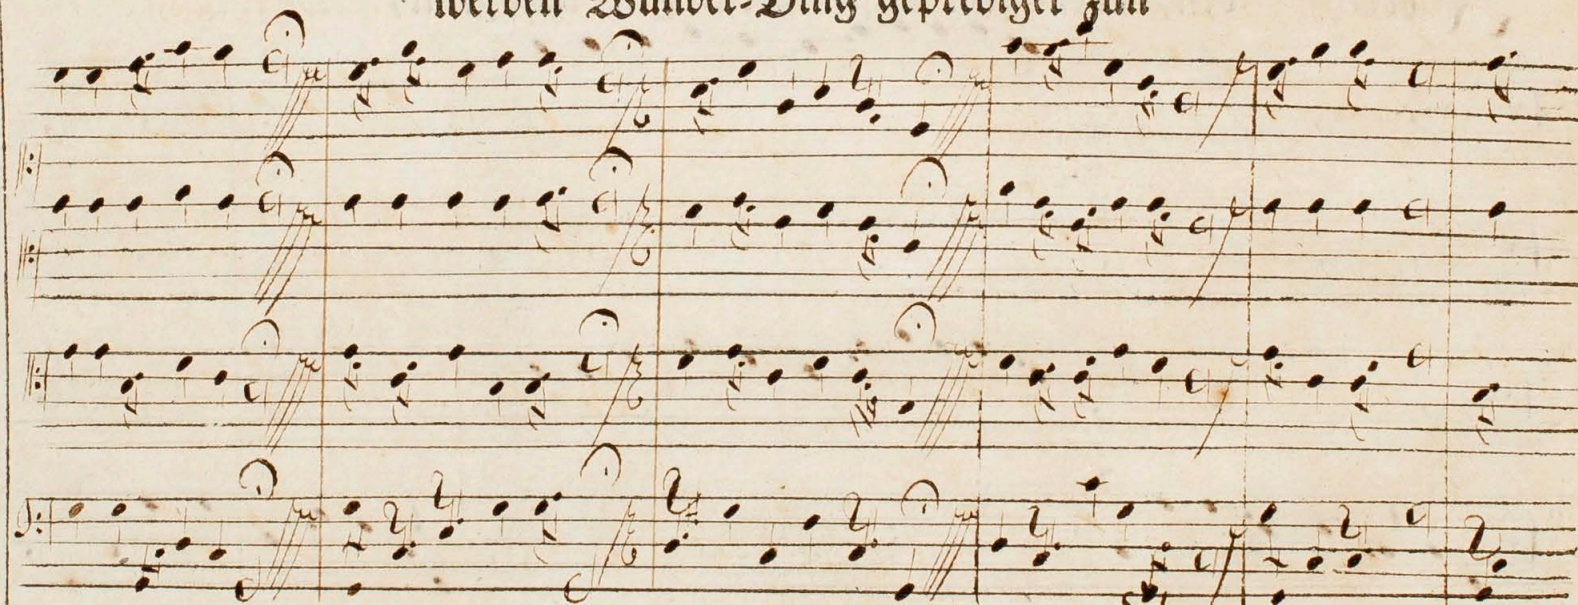 werden Wunder-Ding geprediget